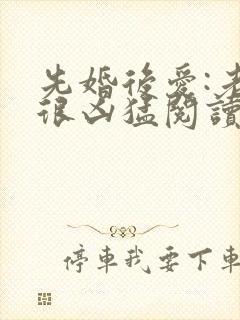 先婚後愛:老
很凶猛閱讀
停車我要下車